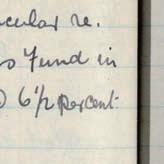 cular re.
s Fund in
) 6½ percent.